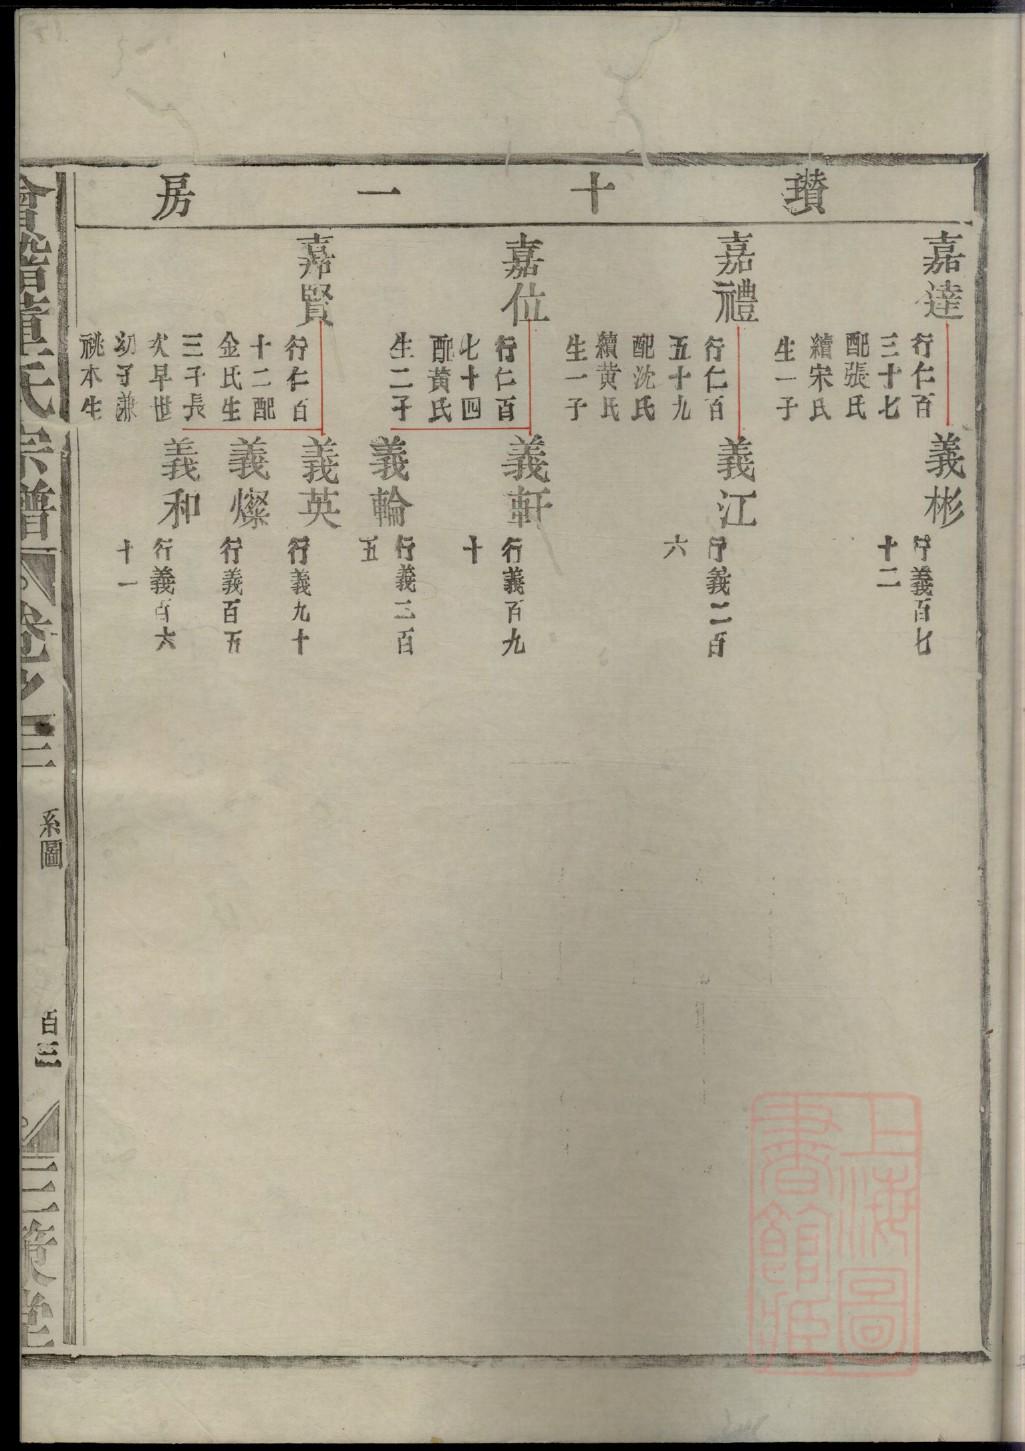 瓚十一房
嘉達
行仁百
三十七
配張氏
續宋氏
生一子
義彬
行義百七
十二
嘉禮
行仁百
五十九
配沈氏
續黄氏
生一子
義江
行義二百
六
嘉位
行仁百
七十四
配黄氏
生二子
義軒
行義百九
十
義輪
行義三百
五
嘉賢
行仁百
十二配
金氏生
三子長
次早世
幼子兼
祧本生
義英
行義九十
義燦
行義百五
義和
行義百六
十一
會稽董氏宗譜
卷之三
系圖
百三
三策堂
上海圖
書館藏